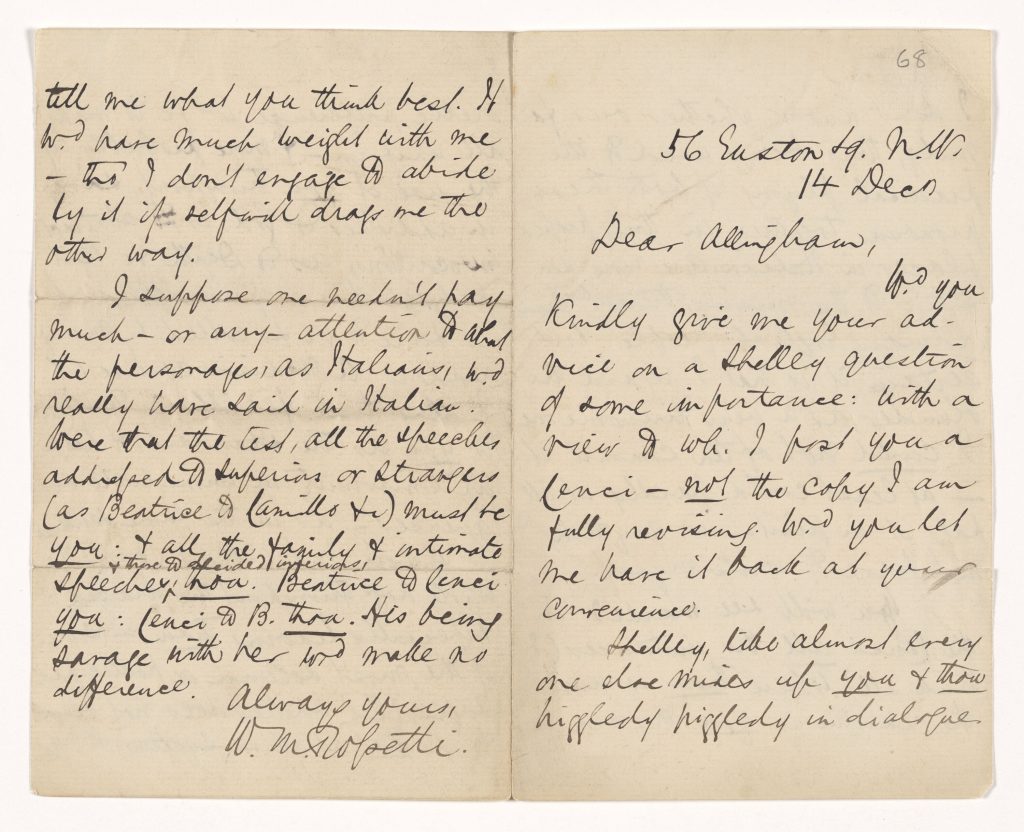 68
56 Euston Sq. N.W.
14 Decr
Dear Allingham,
Wd. you
kindly give me your ad-
vice on a Shelley question
of some importance: with a
view to wh. I post you a
Cenci – not the copy I am
fully revising. Wd. you let
me have it back at your
convenience.
Shelley, like almost every
one else mixes up you & thou
higgledy piggledy in dialogue
tell me what you think best. It
wd. have much weight with me
– tho' I don't engage to abide
by it if self will drags me the
other way.
I suppose one needn't pay
much – or any – attention to what
the personages, as Italians, wd.
really have said in Italian.
Were that the test, all the speeches
addressed to superiors or strangers
(as Beatrice to Camillo &c) must be
you: & all the family & intimate
& those to decided inferiors,
speeches, thou. Beatrice to Cenci
you: Cenci to B. thou. His being
savage with her wod make no
difference.
Always yours,
W. M. Rossetti.